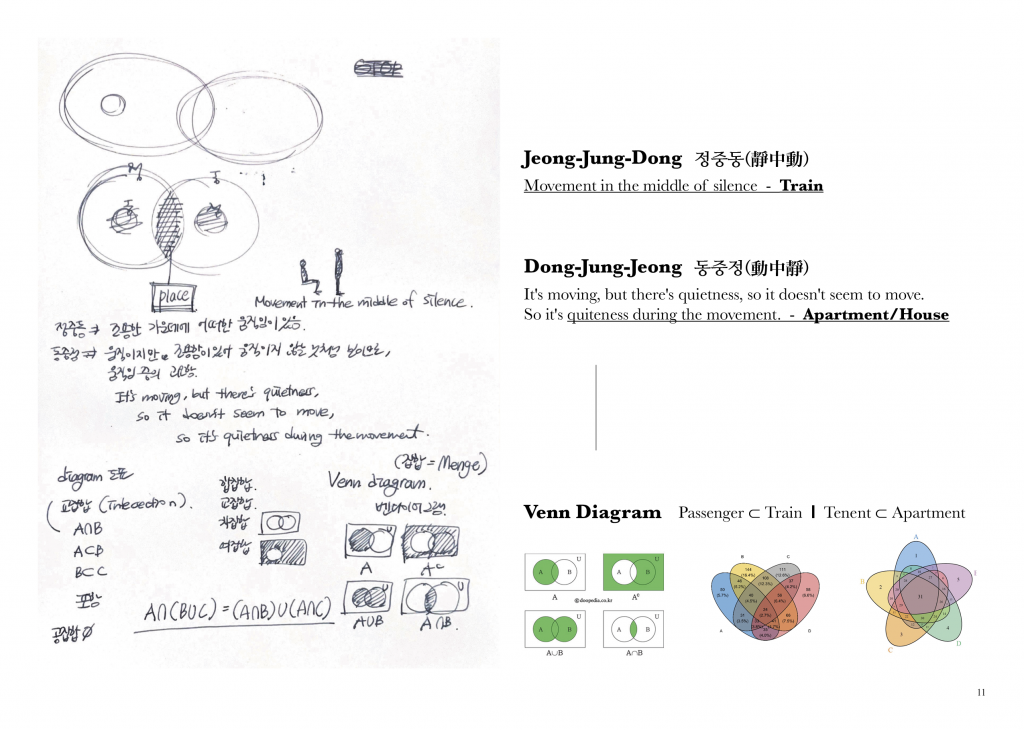 정
동
place
Movement in the middle of silence.
정중동 ⇒ 조용한 가운데에 어떠한 움직임이 있음.
동중정 ⇒ 움직이지만, 조용함이 있어 움직이지 않는 것처럼 보이므로,
움직임 중의
It's moving, but there's quietness,
so it doesn't seem to move,
so it's quietness during the movement.
(집합 = Menge)
diagram 도표
합집합.
Venn diagram.
교집합
교집합.
벤다이어그램.
A∩B
차집합
A⊂B
여집합
B⊂C
A
Aᶜ
포함
A∩(B∪C) = (A∩B)∪(A∩C)
A∪B
A∩B.
공집합 ∅
Jeong-Jung-Dong 정중동(靜中動)
Movement in the middle of silence - Train
Dong-Jung-Jeong 동중정(動中靜)
It's moving, but there's quietness, so it doesn't seem to move.
So it's quiteness during the movement. - Apartment/House
Venn Diagram Passenger ⊂ Train | Tenent ⊂ Apartment
U
A B
A
U
A B
Aᶜ
ⓒdoopedia.co.kr
U
A B
A∪B
U
A B
A∩B
B C
A B
A
B
C
D
1
2
3
4
5
31
11